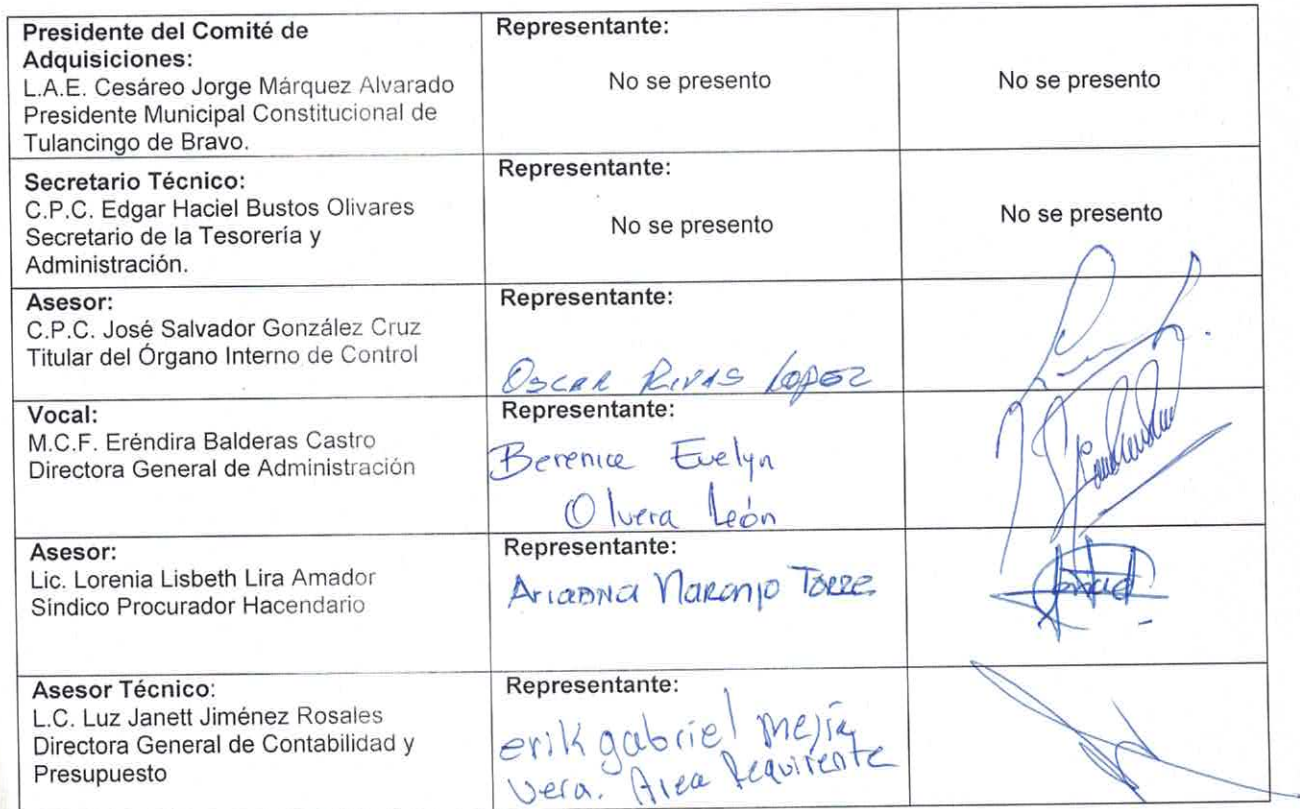 Presidente del Comité de
Adquisiciones:
L.A.E. Cesáreo Jorge Márquez Alvarado
Presidente Municipal Constitucional de
Tulancingo de Bravo.
Representante:
No se presento
No se presento
Secretario Técnico:
C.P.C. Edgar Haciel Bustos Olivares
Secretario de la Tesorería y
Administración.
Representante:
No se presento
No se presento
Asesor:
C.P.C. José Salvador González Cruz
Titular del Órgano Interno de Control
Representante:
Oscar Rivas Lopez
Vocal:
M.C.F. Eréndira Balderas Castro
Directora General de Administración
Representante:
Berenice Evelyn
Olvera León
Asesor:
Lic. Lorenia Lisbeth Lira Amador
Síndico Procurador Hacendario
Representante:
Ariadna Naranjo Torre
Asesor Técnico:
L.C. Luz Janett Jiménez Rosales
Directora General de Contabilidad y
Presupuesto
Representante:
erik gabriel Mejía
Vera. Area Requirente